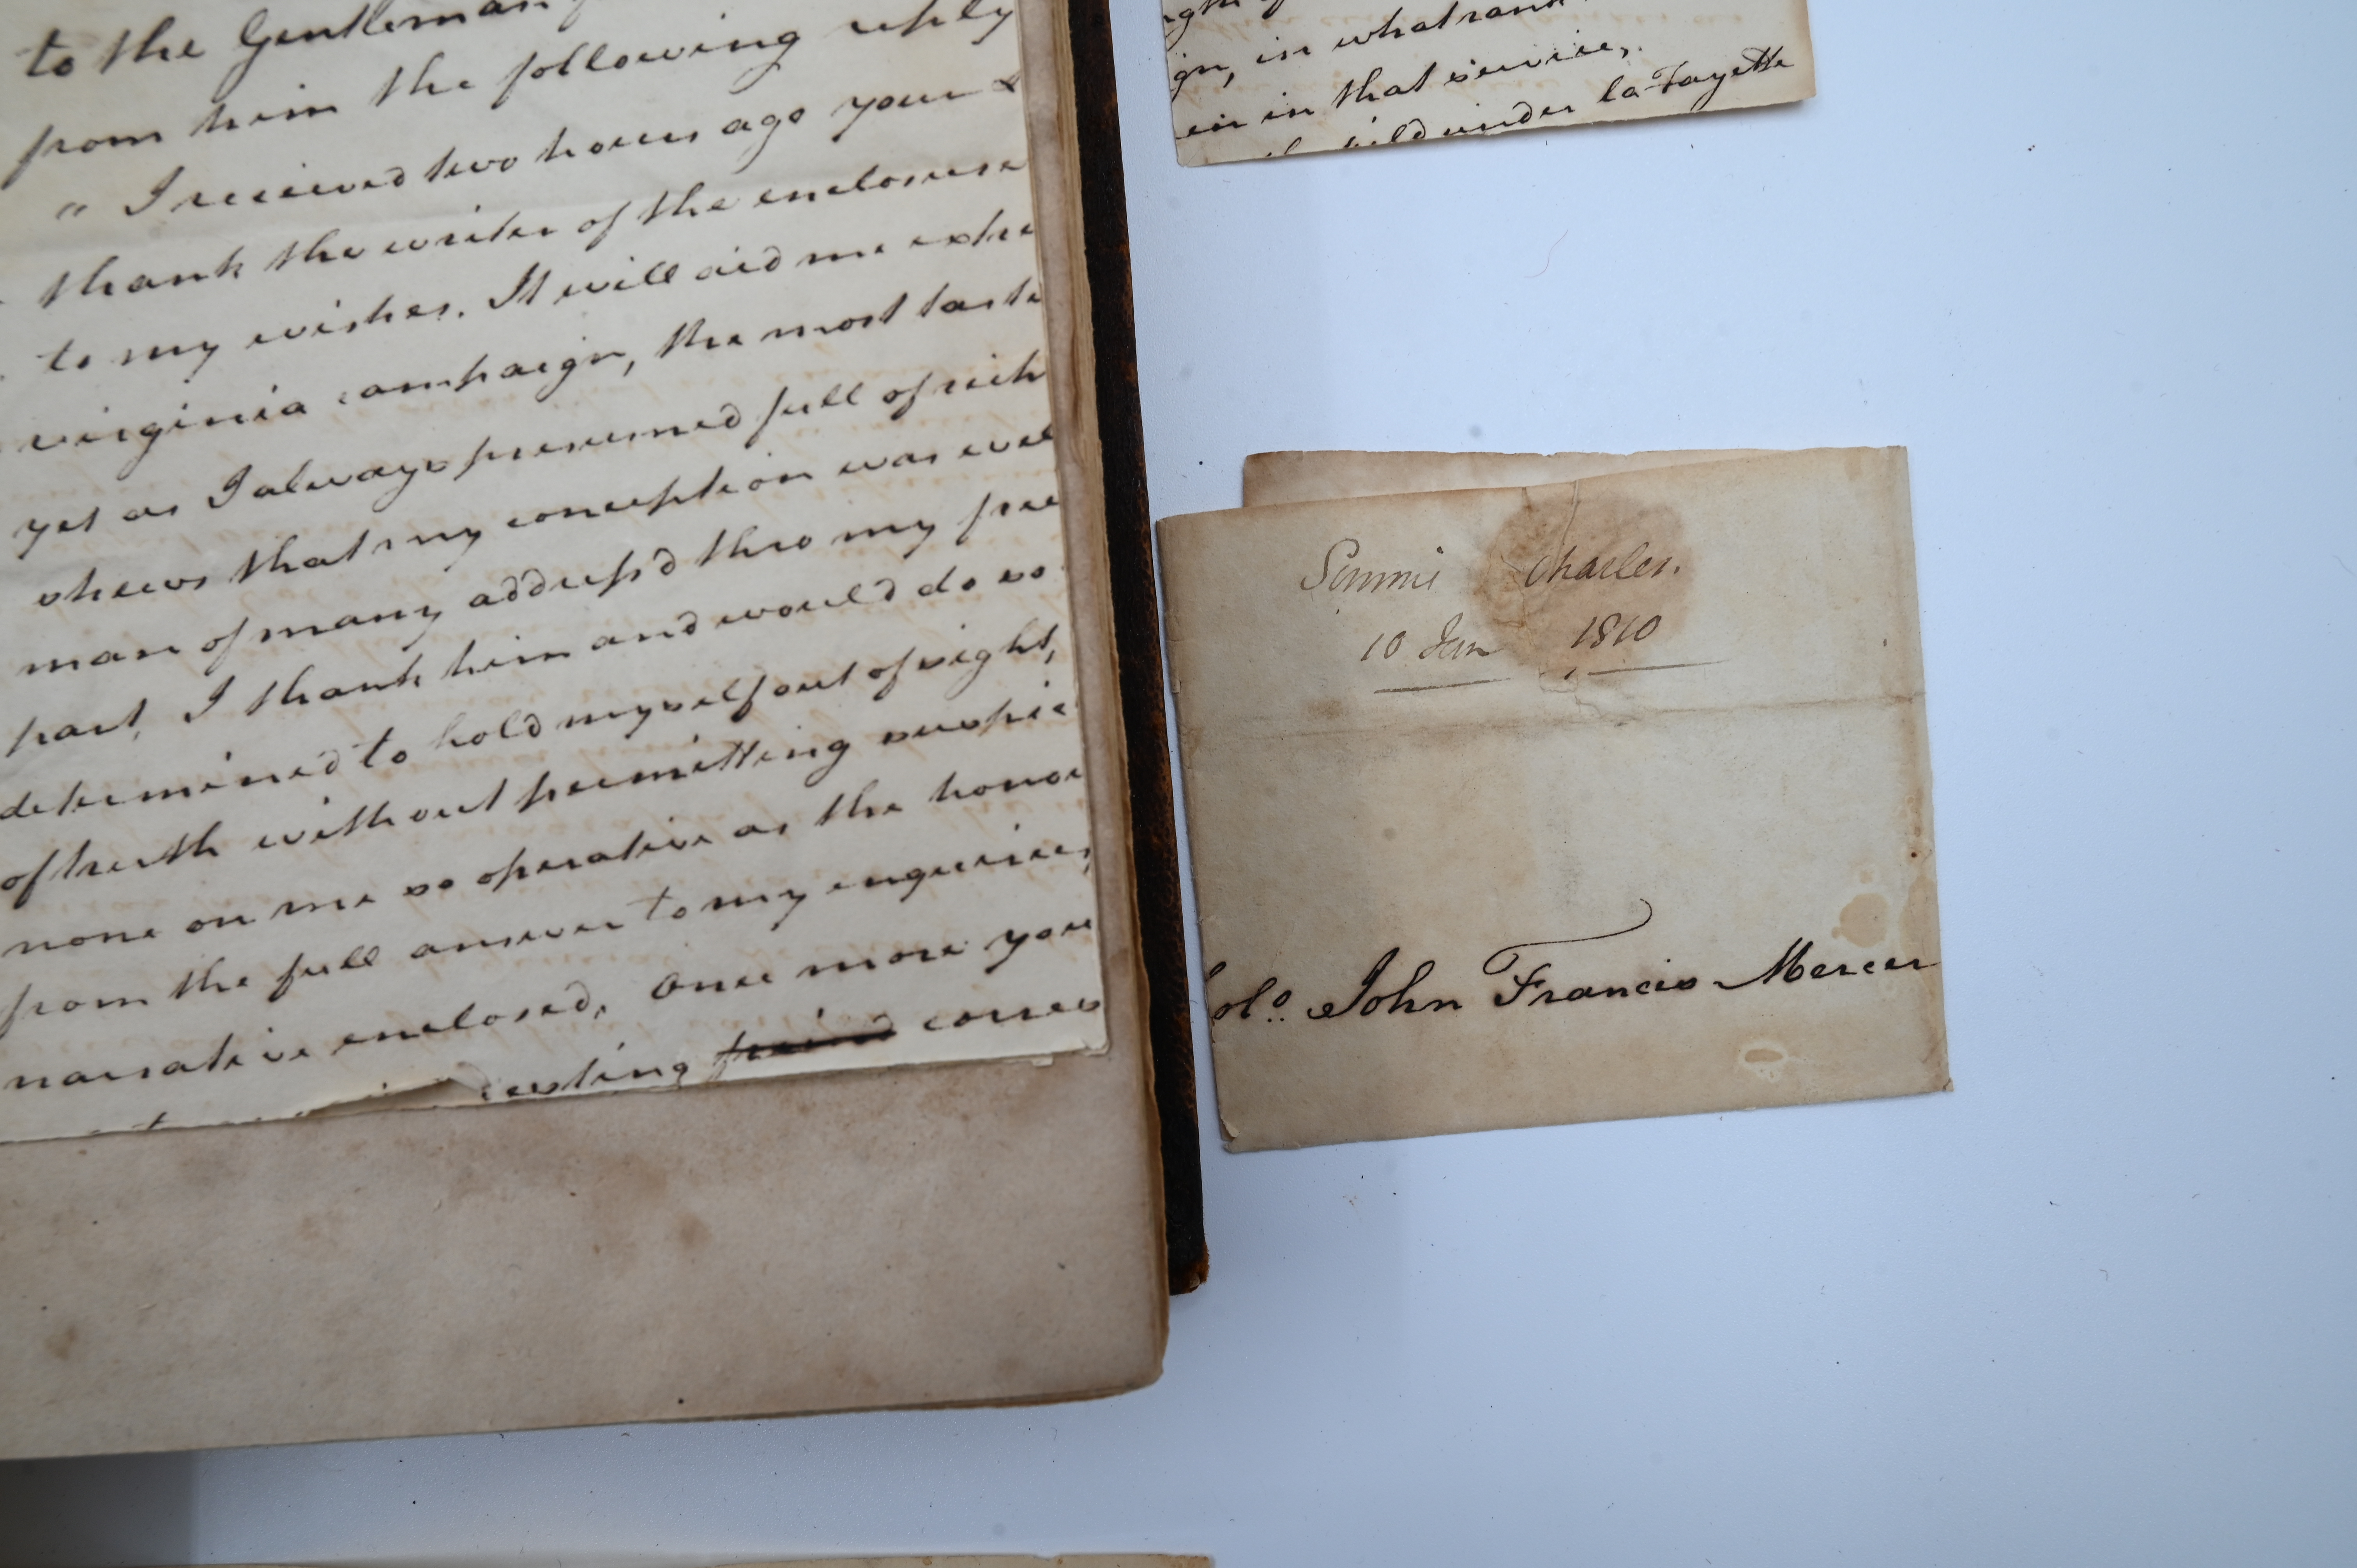 to the Gentleman
from him the following reply
" I received two hours ago your &
thank the writer of the enclosure
to my wishes. It will aid me extre
virginia campaign, the most taste
yet as I always presumed full of rich
shews that my conception was wel
man of many address'd thro my frie
part, I thank him and would do so
determined to hold myself out of sight,
of truth without permitting suspic
none on me so operative as the honor
from the full answer to my enquiries,
narrative enclosed, once more you
esting friend corres
gn, in what rank
en in that service,
field under la Fayette
Simmie Charles.
10 Jan 1810
Colo. John Francis Mercer